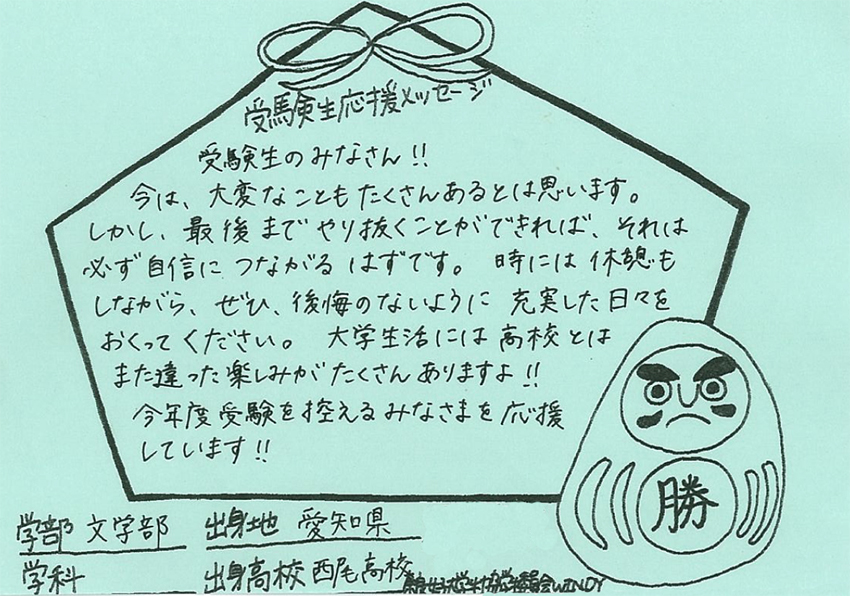 受験生応援メッセージ
受験生のみなさん!!
今は、大変なこともたくさんあるとは思います。
しかし、最後までやり抜くことができれば、それは
必ず自信につながるはずです。時には休憩も
しながら、ぜひ、後悔のないように充実した日々を
おくってください。大学生活には高校とは
また違った楽しみがたくさんありますよ!!
今年度受験を控えるみなさまを応援
しています!!
勝
学部 文学部 出身地 愛知県
学科 出身高校 西尾高校
WINDY